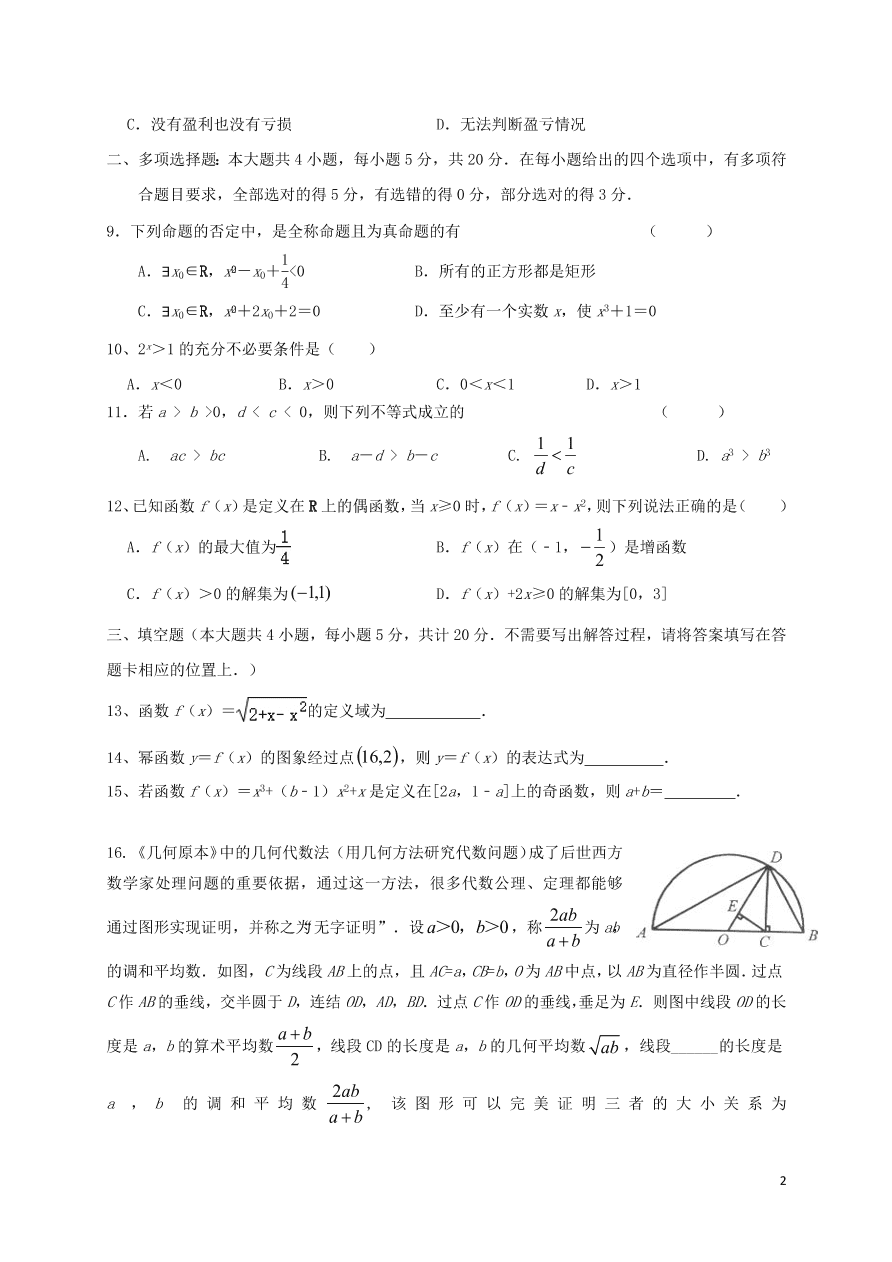 C．没有盈利也没有亏损 D．无法判断盈亏情况
二、多项选择题：本大题共 4 小题，每小题 5 分，共 20 分．在每小题给出的四个选项中，有多项符
合题目要求，全部选对的得 5 分，有选错的得 0 分，部分选对的得 3 分．
9．下列命题的否定中，是全称命题且为真命题的有 （ ）
A．∃x₀∈R，x₀²－x₀＋1/4<0 B．所有的正方形都是矩形
C．∃x₀∈R，x₀²＋2x₀＋2＝0 D．至少有一个实数 x，使 x³＋1＝0
10、2ˣ＞1 的充分不必要条件是（ ）
A．x＜0 B．x＞0 C．0＜x＜1 D．x＞1
11．若 a > b >0，d < c < 0，则下列不等式成立的 （ ）
A. ac > bc B. a－d > b－c C. 1/d < 1/c D. a³ > b³
12、已知函数 f（x）是定义在 R 上的偶函数，当 x≥0 时，f（x）＝x﹣x²，则下列说法正确的是（ ）
A．f（x）的最大值为 1/4 B．f（x）在（﹣1，－1/2）是增函数
C．f（x）＞0 的解集为(−1,1) D．f（x）+2x≥0 的解集为[0，3]
三、填空题（本大题共 4 小题，每小题 5 分，共计 20 分．不需要写出解答过程，请将答案填写在答
题卡相应的位置上．）
13、函数 f（x）＝√(2+x- x²)的定义域为____________．
14、幂函数 y＝f（x）的图象经过点(16,2)，则 y＝f（x）的表达式为__________．
15、若函数 f（x）＝x³+（b﹣1）x²+x 是定义在[2a，1﹣a]上的奇函数，则 a+b＝_________．
16.《几何原本》中的几何代数法（用几何方法研究代数问题）成了后世西方
数学家处理问题的重要依据，通过这一方法，很多代数公理、定理都能够
通过图形实现证明，并称之为“无字证明”．设 a>0，b>0，称 2ab/(a+b) 为 a，b
的调和平均数．如图，C 为线段 AB 上的点，且 AC=a，CB=b，O 为 AB 中点，以 AB 为直径作半圆．过点
C 作 AB 的垂线，交半圆于 D，连结 OD，AD，BD．过点 C 作 OD 的垂线，垂足为 E．则图中线段 OD 的长
度是 a，b 的算术平均数 (a+b)/2，线段 CD 的长度是 a，b 的几何平均数 √ab，线段______的长度是
a ， b 的调和平均数 2ab/(a+b)， 该图形可以完美证明三者的大小关系为
D
E
A O C B
2